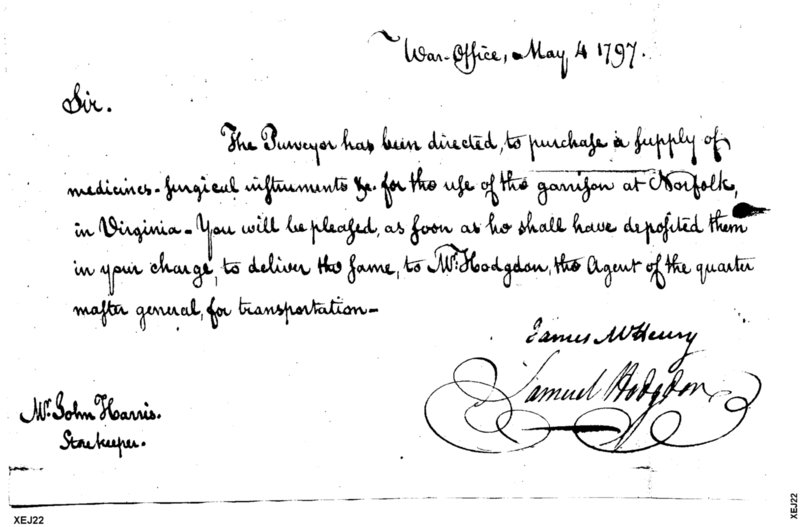 War-Office, May 4 1797.
Sir.
The Purveyor has been directed, to purchase a supply of
medicines - surgical instruments &c. for the use of the garrison at Norfolk,
in Virginia - You will be pleased, as soon as he shall have deposited them
in your charge, to deliver the same, to Mr. Hodgdon, the Agent of the quarter
master general, for transportation -
James McHenry
Samuel Hodgdon
Mr. John Harris.
Storekeeper.
XEJ22
XEJ22